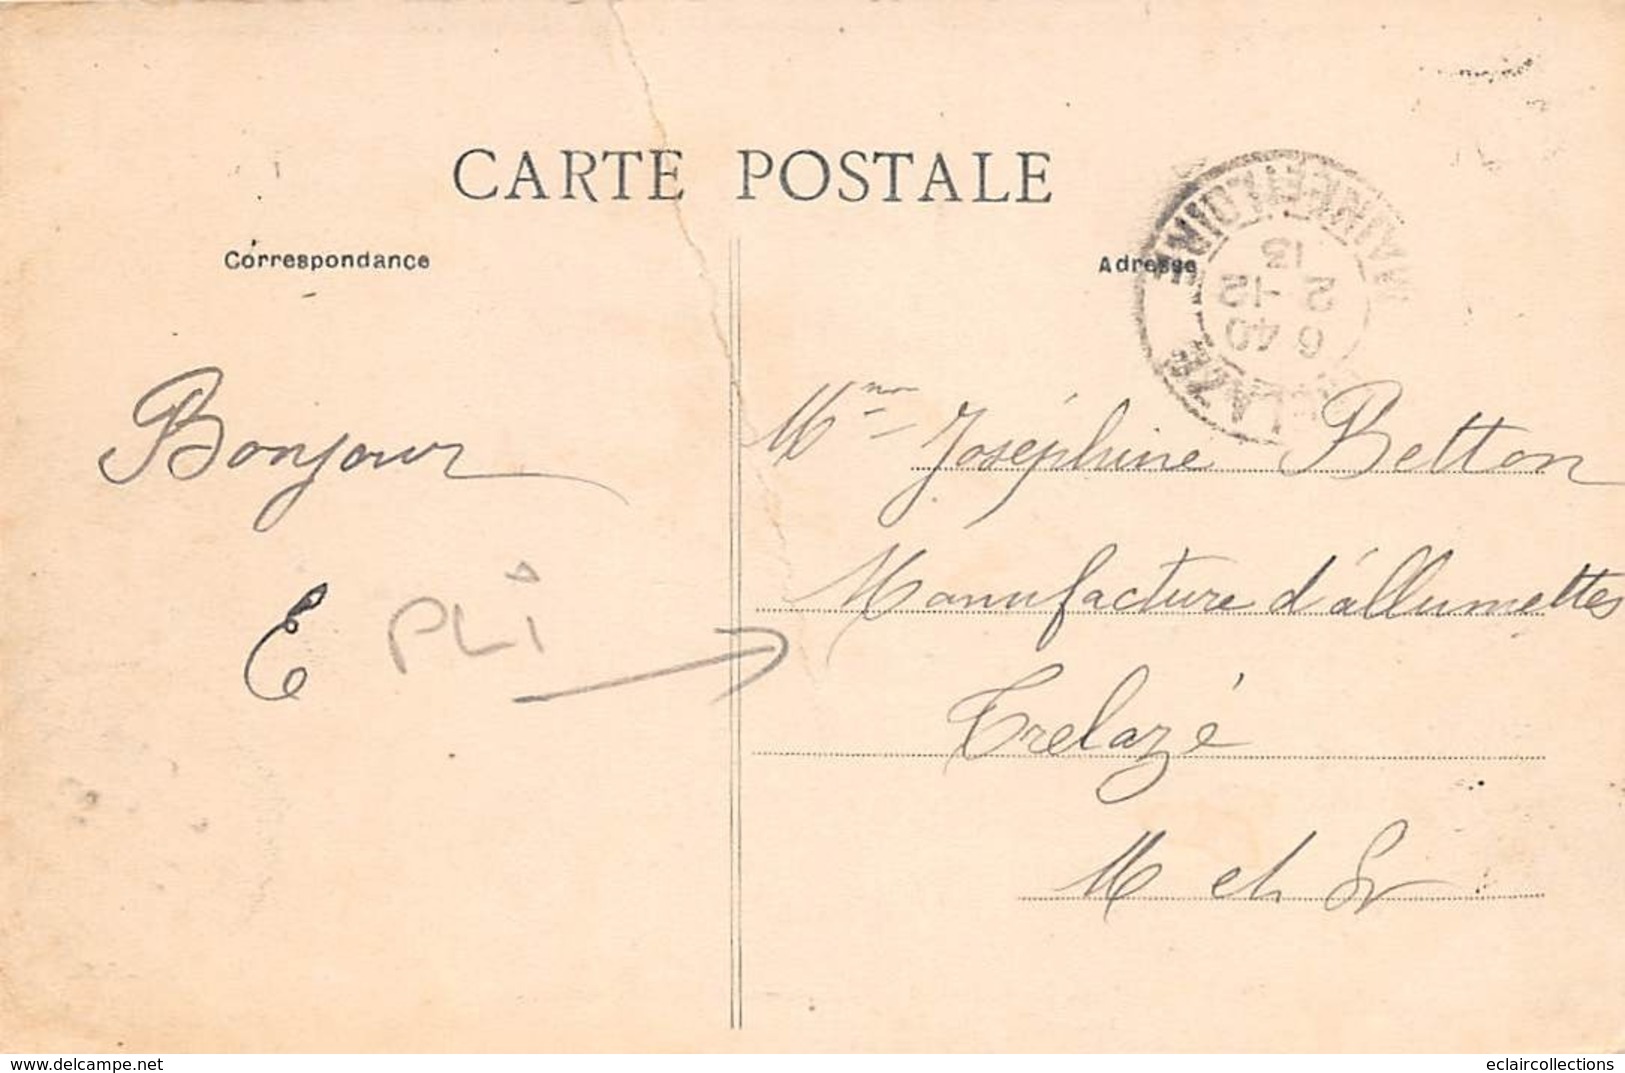 CARTE POSTALE
Correspondance
Adresse
TRELAZE
MAINE-ET-LOIRE
6 40
2 -12
13
Bonjour
E
PLi
Mme Joséphine Betton
Manufacture d'allumettes
Trelazé
M et L
www.delcampe.net
eclaircollections